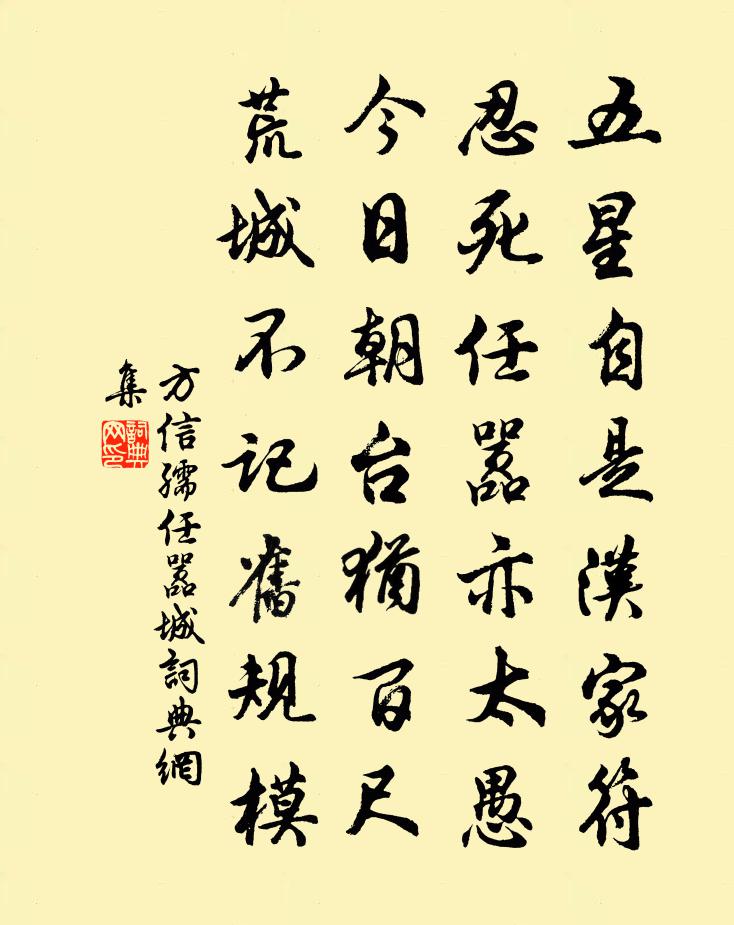 五星自是漢家符
忍死任嚣亦太愚
今日朝台猶百尺
荒城不记舊规模
方信孺任嚣城詞典網
集
詞典
网印